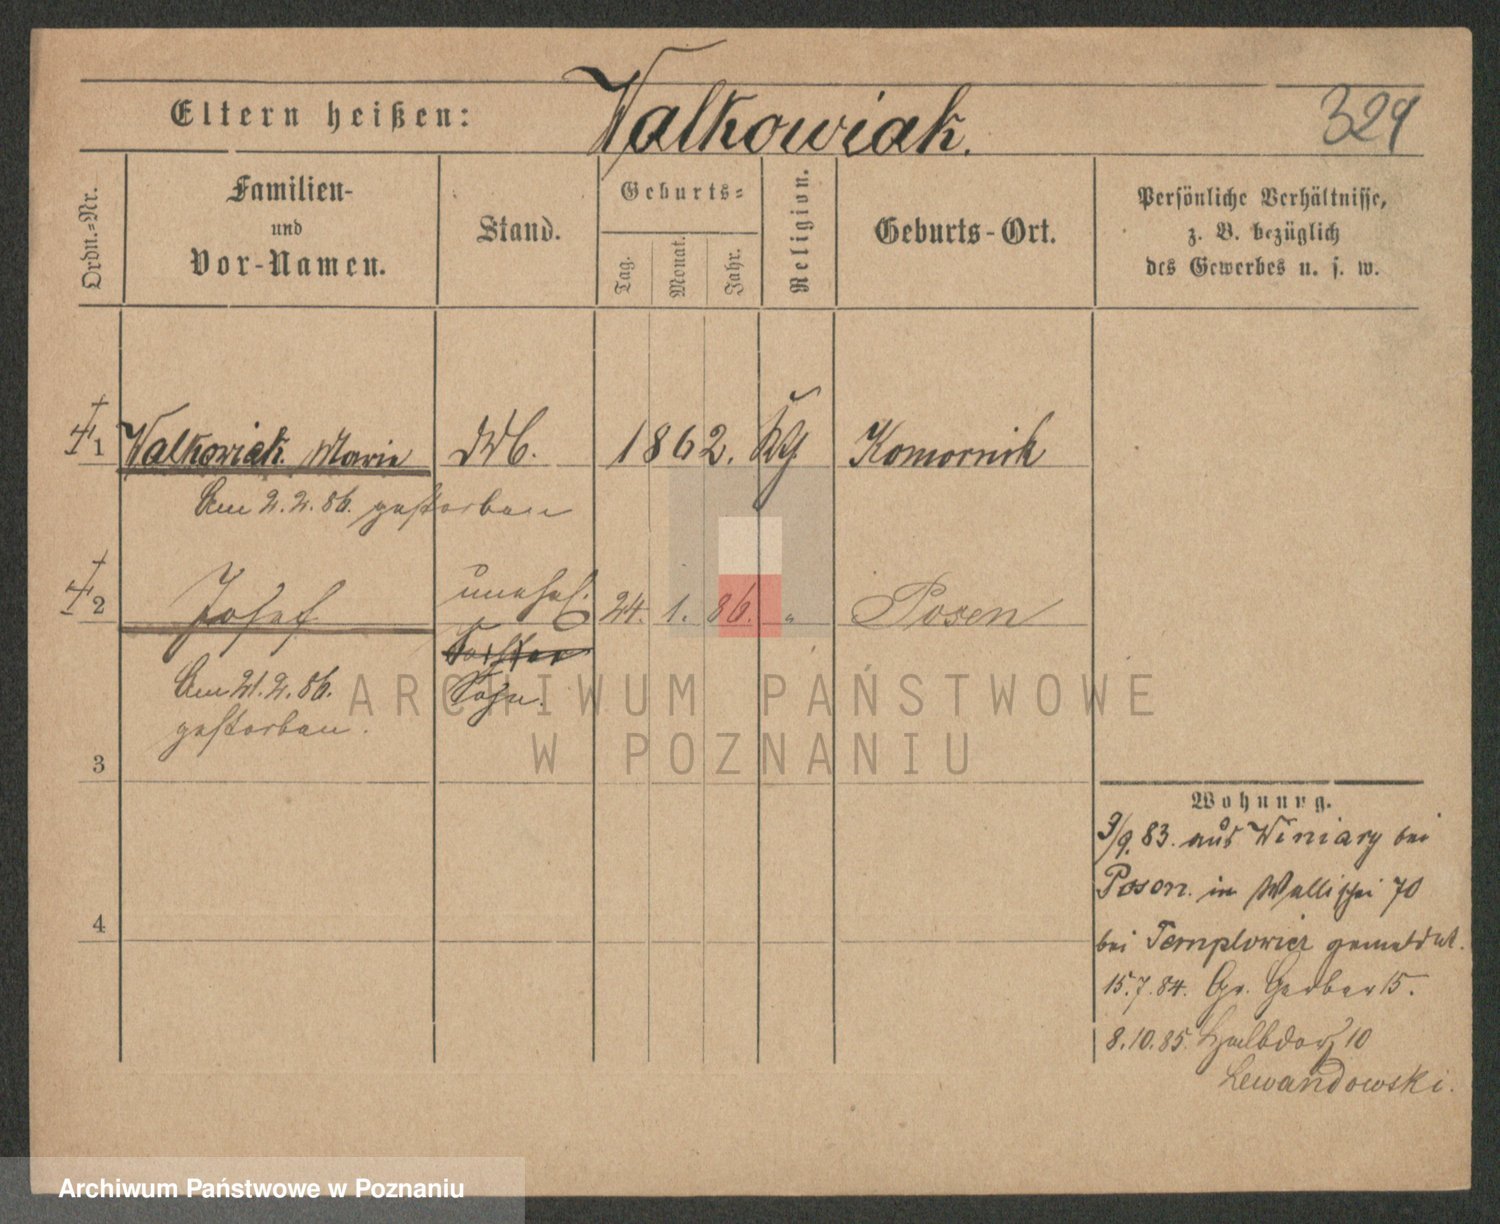 Eltern heißen: Walkowiak. 329
Ordn.-Nr.
Familien-
und
Vor-Namen.
Stand.
Geburts-
Tag.
Monat.
Jahr.
Religion.
Geburts-Ort.
Persönliche Verhältnisse,
z. B. bezüglich
des Gewerbes u. s. w.
1 Walkowiak Marie 1862. Komornik
Am 2.2.86. gestorben
2 Josef unehel. 24. 1. 86. " Posen
Tochter
Sohn.
Am 21.2.86.
gestorben.
3
4
Wohnung.
9/9.83. aus Winiary bei
Posen. in Wallischei 70
bei Templowicz gemeldet.
15.7.84. Gr. Gerber 15.
8.10.85. Halbdorf 10
Lewandowski.
ARCHIWUM PAŃSTWOWE
W POZNANIU
Archiwum Państwowe w Poznaniu